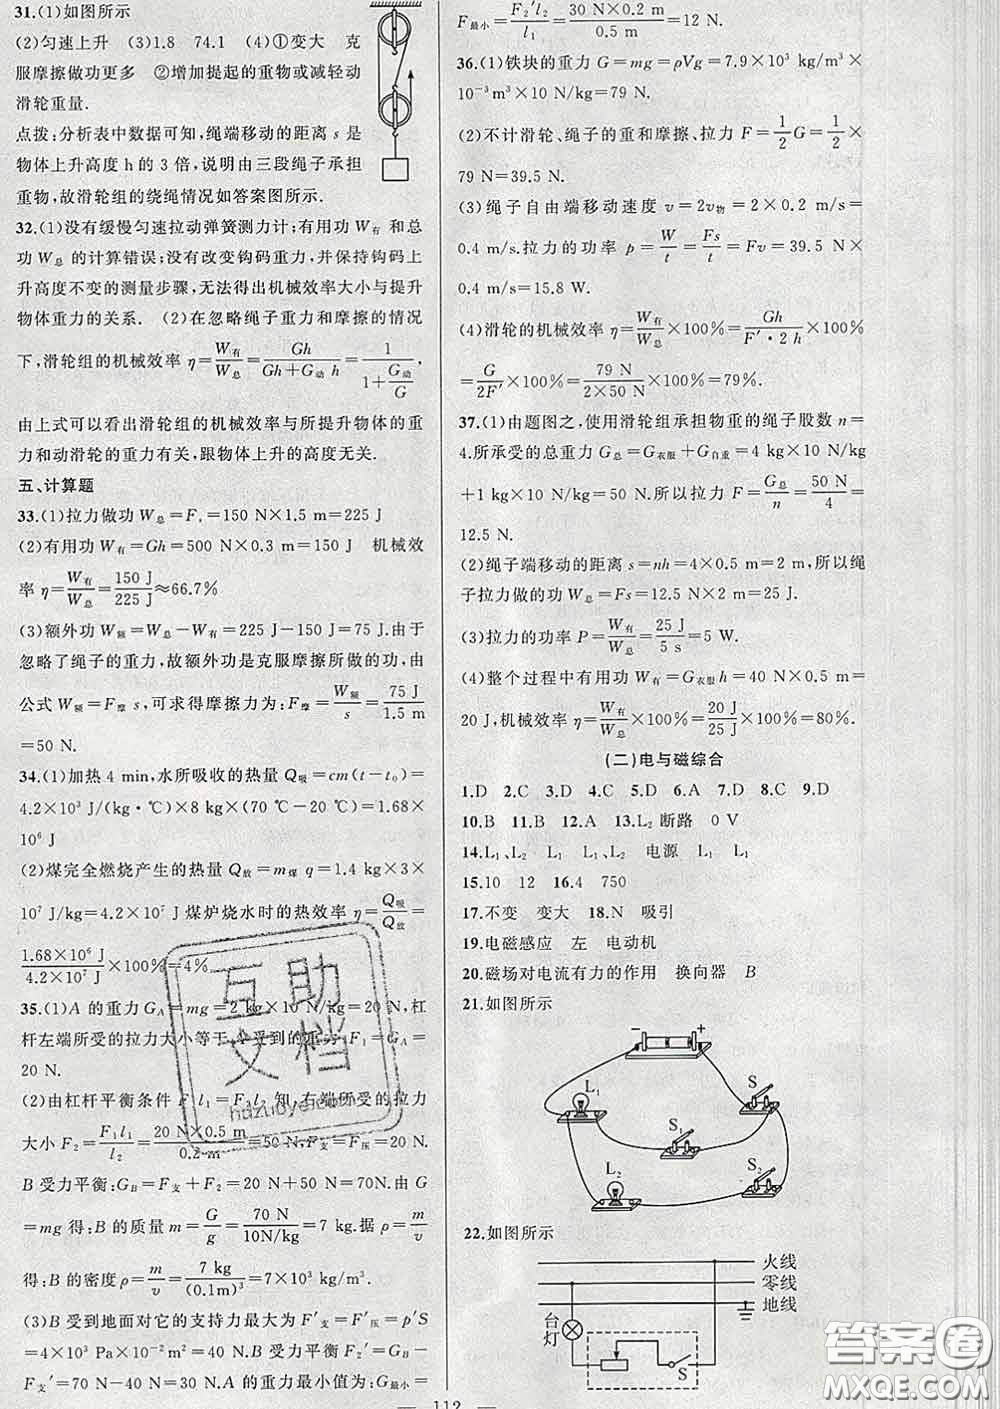 31.(1)如图所示
(2)匀速上升 (3)1.8 74.1 (4)①变大 克
服摩擦做功更多 ②增加提起的重物或减轻动
滑轮重量.
点拨:分析表中数据可知,绳端移动的距离 s 是
物体上升高度 h 的 3 倍,说明由三段绳子承担
重物,故滑轮组的绕绳情况如答案图所示.
32.(1)没有缓慢匀速拉动弹簧测力计;有用功 W有 和总
功 W总 的计算错误;没有改变钩码重力,并保持钩码上
升高度不变的测量步骤,无法得出机械效率大小与提升
物体重力的关系. (2)在忽略绳子重力和摩擦的情况
下,滑轮组的机械效率 η=W有/W总=Gh/(Gh+G动 h)=1/(1+G动/G),
由上式可以看出滑轮组的机械效率与所提升物体的重
力和动滑轮的重力有关,跟物体上升的高度无关.
五、计算题
33.(1)拉力做功 W总=Fs=150 N×1.5 m=225 J
(2)有用功 W有=Gh=500 N×0.3 m=150 J 机械效
率 η=W有/W总=150 J/225 J≈66.7%
(3)额外功 W额=W总-W有=225 J-150 J=75 J.由于
忽略了绳子的重力,故额外功是克服摩擦所做的功,由
公式 W额=F摩 s,可求得摩擦力为:F摩=W额/s=75 J/1.5 m
=50 N.
34.(1)加热 4 min,水所吸收的热量 Q吸=cm(t-t₀)=
4.2×10³ J/(kg·℃)×8 kg×(70 ℃-20 ℃)=1.68×
10⁶ J
(2)煤完全燃烧产生的热量 Q放=m煤 q=1.4 kg×3×
10⁷ J/kg=4.2×10⁷ J 煤炉烧水时的热效率 η=Q吸/Q放=
1.68×10⁶ J/4.2×10⁷ J×100%=4%
35.(1)A 的重力 GA=mg=2 kg×10 N/kg=20 N,杠
杆左端所受的拉力大小等于 A 受到的重力 F₁=GA=
20 N.
(2)由杠杆平衡条件 F₁l₁=F₂l₂ 知,右端所受的拉力
大小 F₂=F₁l₁/l₂=20 N×0.5 m/0.2 m=50 N,F支=F压=20 N.
B 受力平衡:GB=F支+F₂=20 N+50 N=70 N.由 G
=mg 得:B 的质量 m=G/g=70 N/10N/kg=7 kg.据 ρ=m/v
得:B 的密度 ρ=m/v=7 kg/(0.1m)³=7×10³ kg/m³.
(3)B 受到地面对它的支持力最大为 F′支=F′压=p′S
=4×10³ Pa×10⁻²m²=40 N.B 受力平衡 F₂′=GB-
F支′=70 N-40 N=30 N.A 的重力最小值为:G最小=
F最小=F₂′l₂/l₁=30 N×0.2 m/0.5 m=12 N.
36.(1)铁块的重力 G=mg=ρVg=7.9×10³ kg/m³×
10⁻³m³×10 N/kg=79 N.
(2)不计滑轮、绳子的重和摩擦、拉力 F=1/2G=1/2×
79 N=39.5 N.
(3)绳子自由端移动速度 v=2v物=2×0.2 m/s=
0.4 m/s.拉力的功率 p=W/t=Fs/t=Fv=39.5 N×
0.4 m/s=15.8 W.
(4)滑轮的机械效率 η=W有/W总×100%=Gh/F′·2h×100%
=G/2F′×100%=79 N/2×50 N×100%=79%.
37.(1)由题图之,使用滑轮组承担物重的绳子股数 n=
4.所承受的总重力 G总=G衣服+G自重=4 kg×10 N/kg
+1 kg×10 N/kg=50 N.所以拉力 F=G总/n=50 N/4=
12.5 N.
(2)绳子端移动的距离 s=nh=4×0.5 m=2 m,所以绳
子拉力做的功 W总=Fs=12.5 N×2 m=25 J.
(3)拉力的功率 P=W有/W总=25 J/5 s=5 W.
(4)整个过程中有用功 W有=G衣服h=40 N×0.5 m=
20 J,机械效率 η=W有/W总×100%=20 J/25 J×100%=80%.
(二)电与磁综合
1.D 2.C 3.D 4.C 5.D 6.A 7.D 8.C 9.D
10.B 11.B 12.A 13.L₂ 断路 0 V
14.L₁、L₂ L₁ L₁ L₂ 电源 L₁ L₁
15.10 12 16.4 750
17.不变 变大 18.N 吸引
19.电磁感应 左 电动机
20.磁场对电流有力的作用 换向器 B
21.如图所示
- +
L₁
S
S₁
L₂
S₂
22.如图所示
火线
零线
地线
台灯
S
112
互助文档
答案圈
MXQE.COM